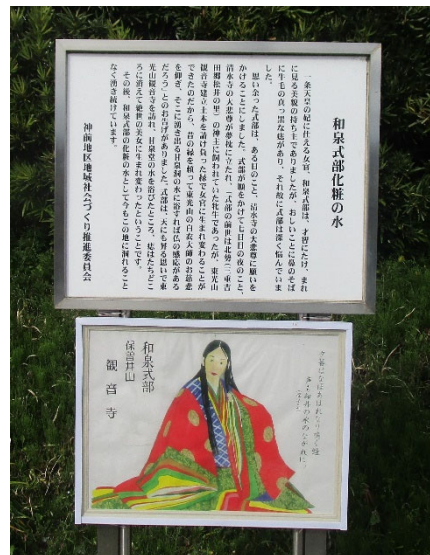 和泉式部化粧の水
一条天皇の妃に仕える女官、和泉式部は、才智にたけ、まれ
に見る美貌の持ち主でありましたが、おしいことに鼻のそば
に牛毛の真っ黒な痣があり、それ故に式部は深く悩んでいま
した。
思い余った式部は、ある日のこと、清水寺の大悲尊に願いを
かけることにしました。式部が願をかけて七日目の夜のこと、
清水寺の大悲尊が夢枕に立たれ、「式部の前世は北勢(三重吉
田郷松井の里)の神主に飼われていた牝牛であったが、東光山
観音寺建立土木を請け負った縁で女官に生まれ変わることが
できたのだから、昔の縁を頼って東光山の白衣大師のお慈悲
を仰ぎ、そこに湧き出る甘泉洞の水に浴すれば仏の感応がある
だろう」とのお告げがありました。式部は、天にも昇る思いで東
光山観音寺を訪れ、甘泉堂の水を浴びたところ、痣はたちどこ
ろに消えて絶世の美女に生まれ変わったということです。
その後、和泉式部の化粧の水として今もこの地に涸れること
なく湧き続けています。
神前地区地域社会づくり推進委員会
和泉式部
保善井山
観音寺